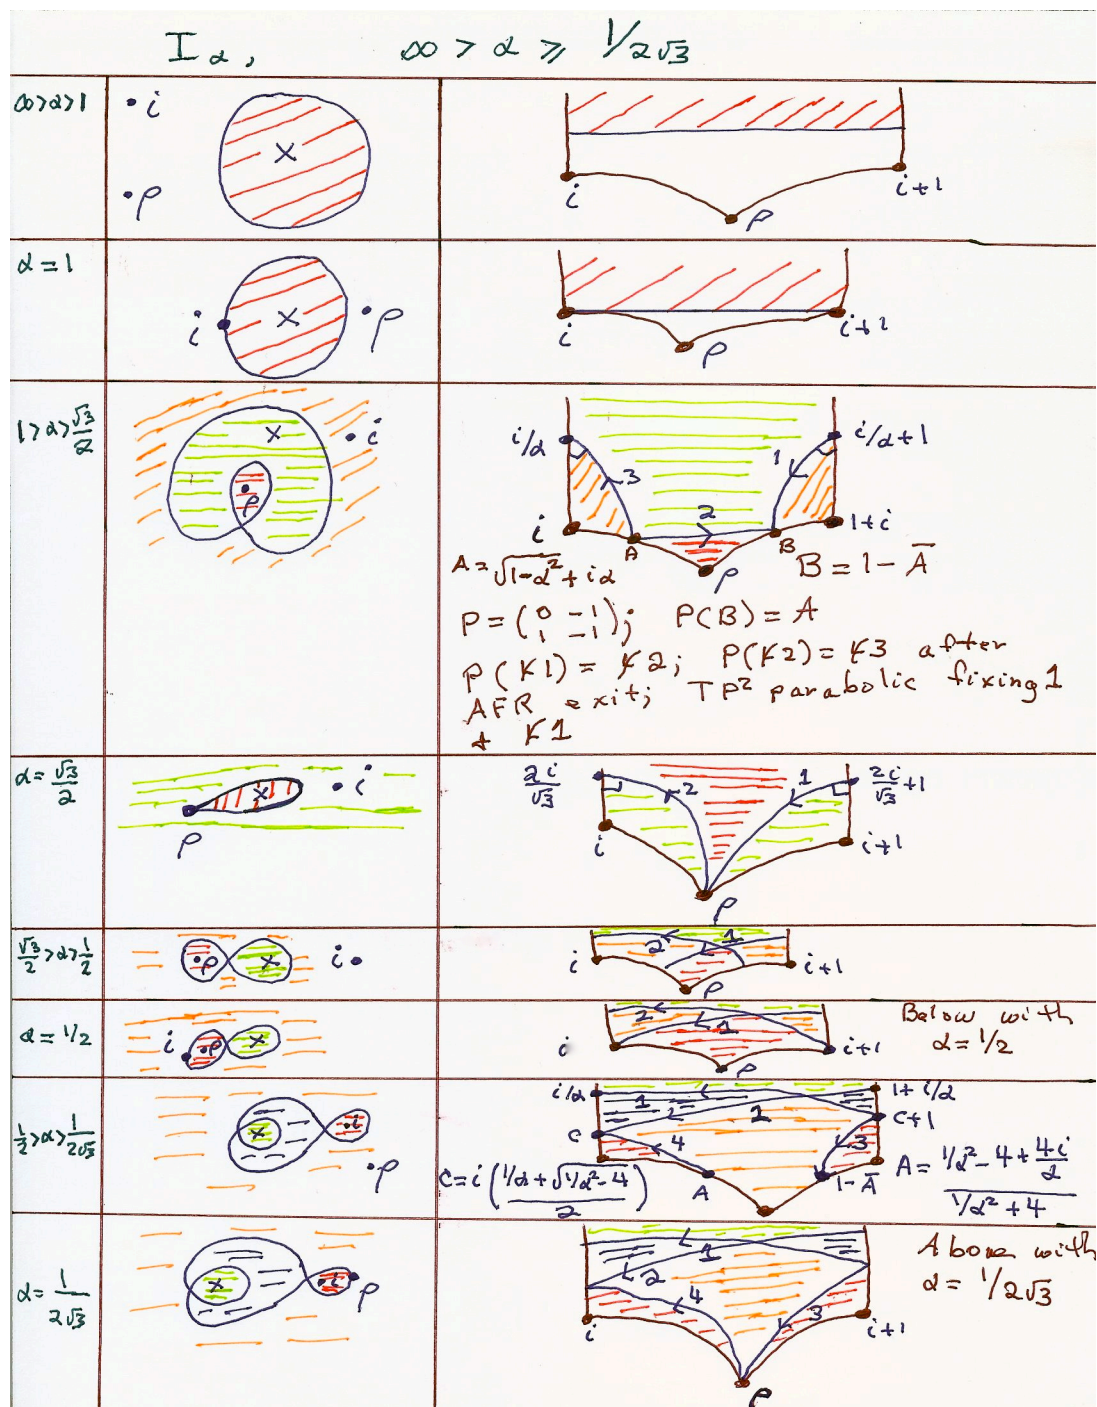 I_α, ∞ > α ⩾ 1/2√3
∞>α>1
i
ρ
x
i
i+1
ρ
α=1
i
x
ρ
i
i+1
ρ
1>α>√3/2
x
i
ρ
i/α
i/α+1
3
1
2
i
1+i
A
B
ρ
A=√1-α²+iα
B=1-A̅
P=(0 -1; 1 -1); P(B)=A
P(K1)=K2; P(K2)=K3 after
AFR exit; TP² parabolic fixing 1
+ K1
α=√3/2
x
i
ρ
2i/√3
2i/√3+1
2
1
i
i+1
ρ
√3/2>α>1/2
ρ
x
i
2
1
i
i+1
ρ
α=1/2
i
ρ
x
2
1
i
i+1
ρ
Below with
α=1/2
1/2>α>1/2√3
x
i
ρ
i/α
1+i/2
1
2
1
C
C+1
4
3
A
1-A̅
C=i(1/α+√1/α²-4 / 2)
A=1/α²-4+4i/α / 1/α²+4
α=1/2√3
x
i
ρ
1
2
4
3
i
i+1
ρ
Above with
α=1/2√3